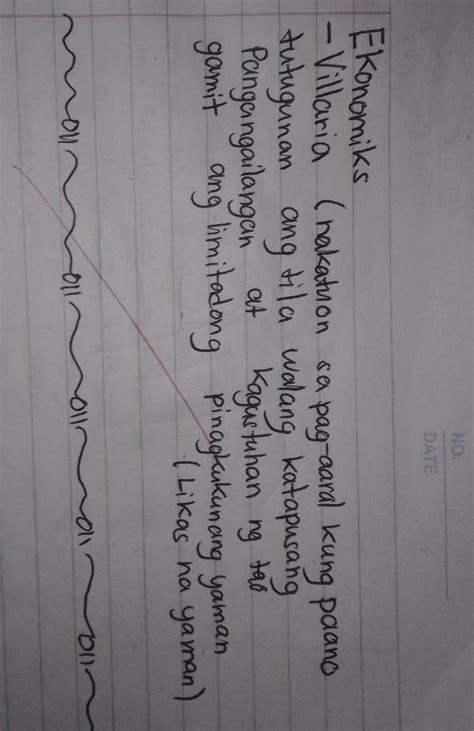 NO.
DATE
Ekonomiks
- Villaria (nakatuon sa pag-aaral kung paano
tutugunan ang tila walang katapusang
Pangangailangan at kagustuhan ng tao
gamit ang limitadong pinagkukunang yaman
(Likas na yaman)